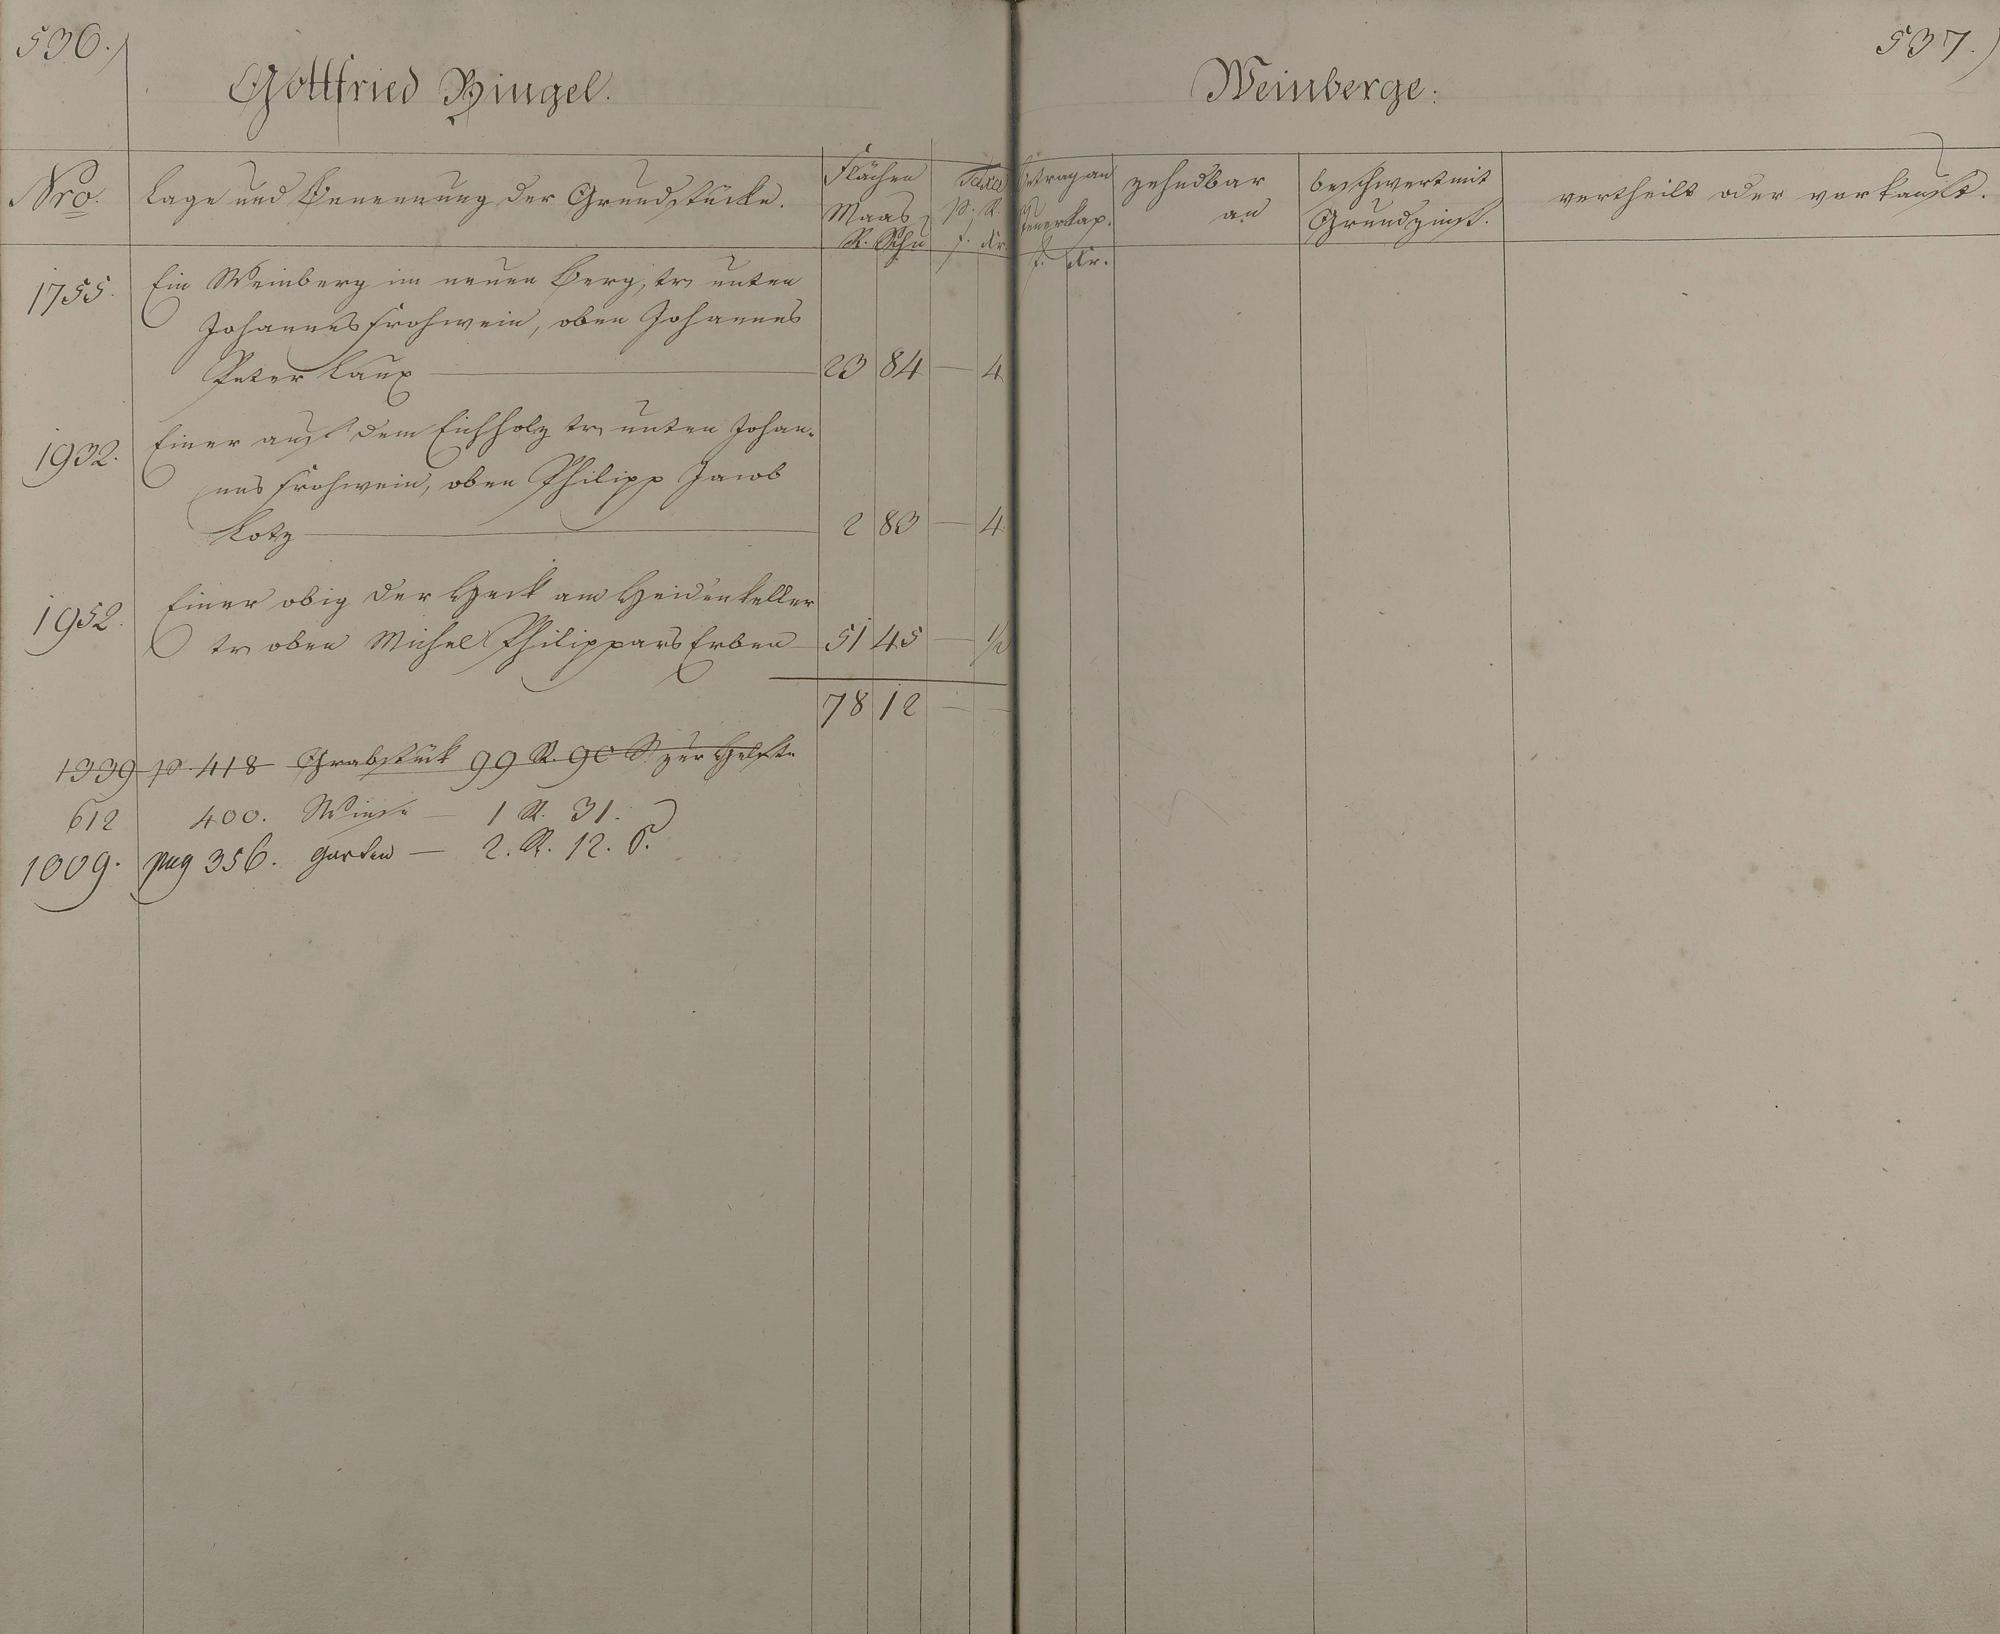 536.)
Gottfried Bingel.
Nro.
Lage und Benennung der Grundstücke.
Flächen
Maas
R. Schu
Taxe
p. R.
f. Kr.
1755. Ein Weinberg im neuen Berg, tr. unten
Johannes Frohwein, oben Johannes
Peter Laux — 23 84 — 4
1932. Einer auf dem Eichholz tr. unten Johan-
nes Frohwein, oben Philipp Jacob
Kotz — 2 83 — 4
1952. Einer obig der Heck am Heidenkeller
tr. oben Michel Philippars Erben — 51 45 — 1/2
78 12 — —
1339 p. 418 Grabstück 99 R. 90 S. zur Helfte
612 400. Wiese — 1 R. 31.
1009. pag 356. Garten — 2. R. 12. S.
537.)
Weinberge:
Betrag an
Steuerkap.
f. Kr.
zehndbar
an
beschwert mit
Grundzinst.
vertheilt oder verkauft.